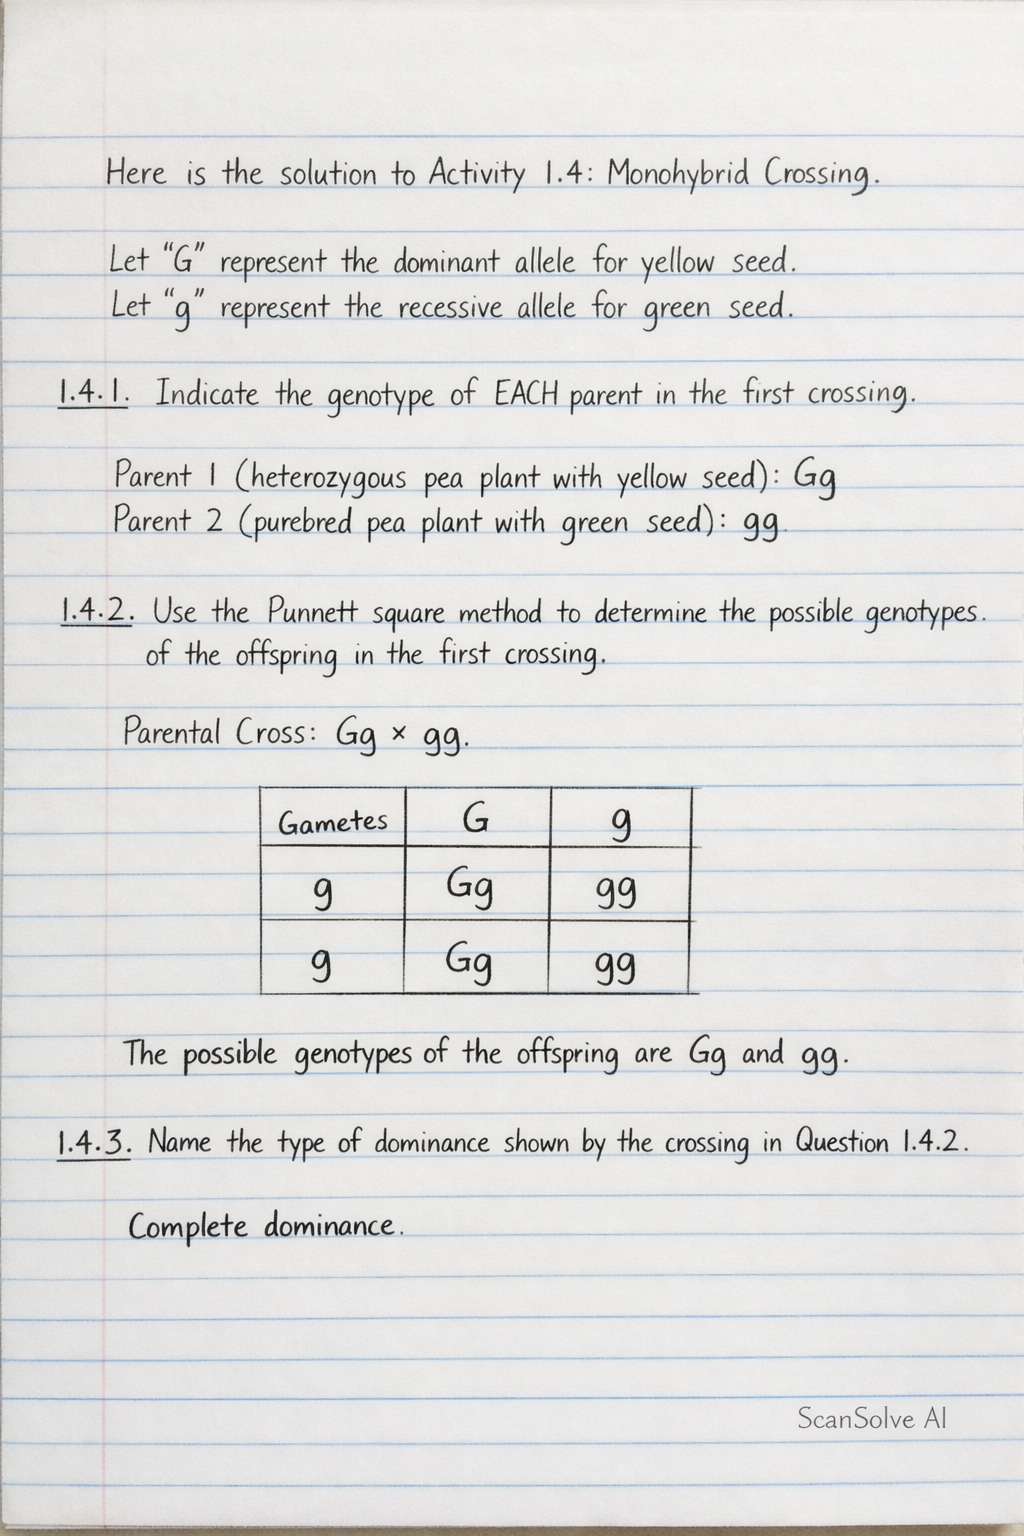 Here is the solution to Activity 1.4: Monohybrid Crossing.
Let "G" represent the dominant allele for yellow seed.
Let "g" represent the recessive allele for green seed.
1.4.1. Indicate the genotype of EACH parent in the first crossing.
Parent 1 (heterozygous pea plant with yellow seed): Gg
Parent 2 (purebred pea plant with green seed): gg.
1.4.2. Use the Punnett square method to determine the possible genotypes.
of the offspring in the first crossing.
Parental Cross: Gg × gg.
Gametes G g
g Gg gg
g Gg gg
The possible genotypes of the offspring are Gg and gg.
1.4.3. Name the type of dominance shown by the crossing in Question 1.4.2.
Complete dominance.
ScanSolve AI